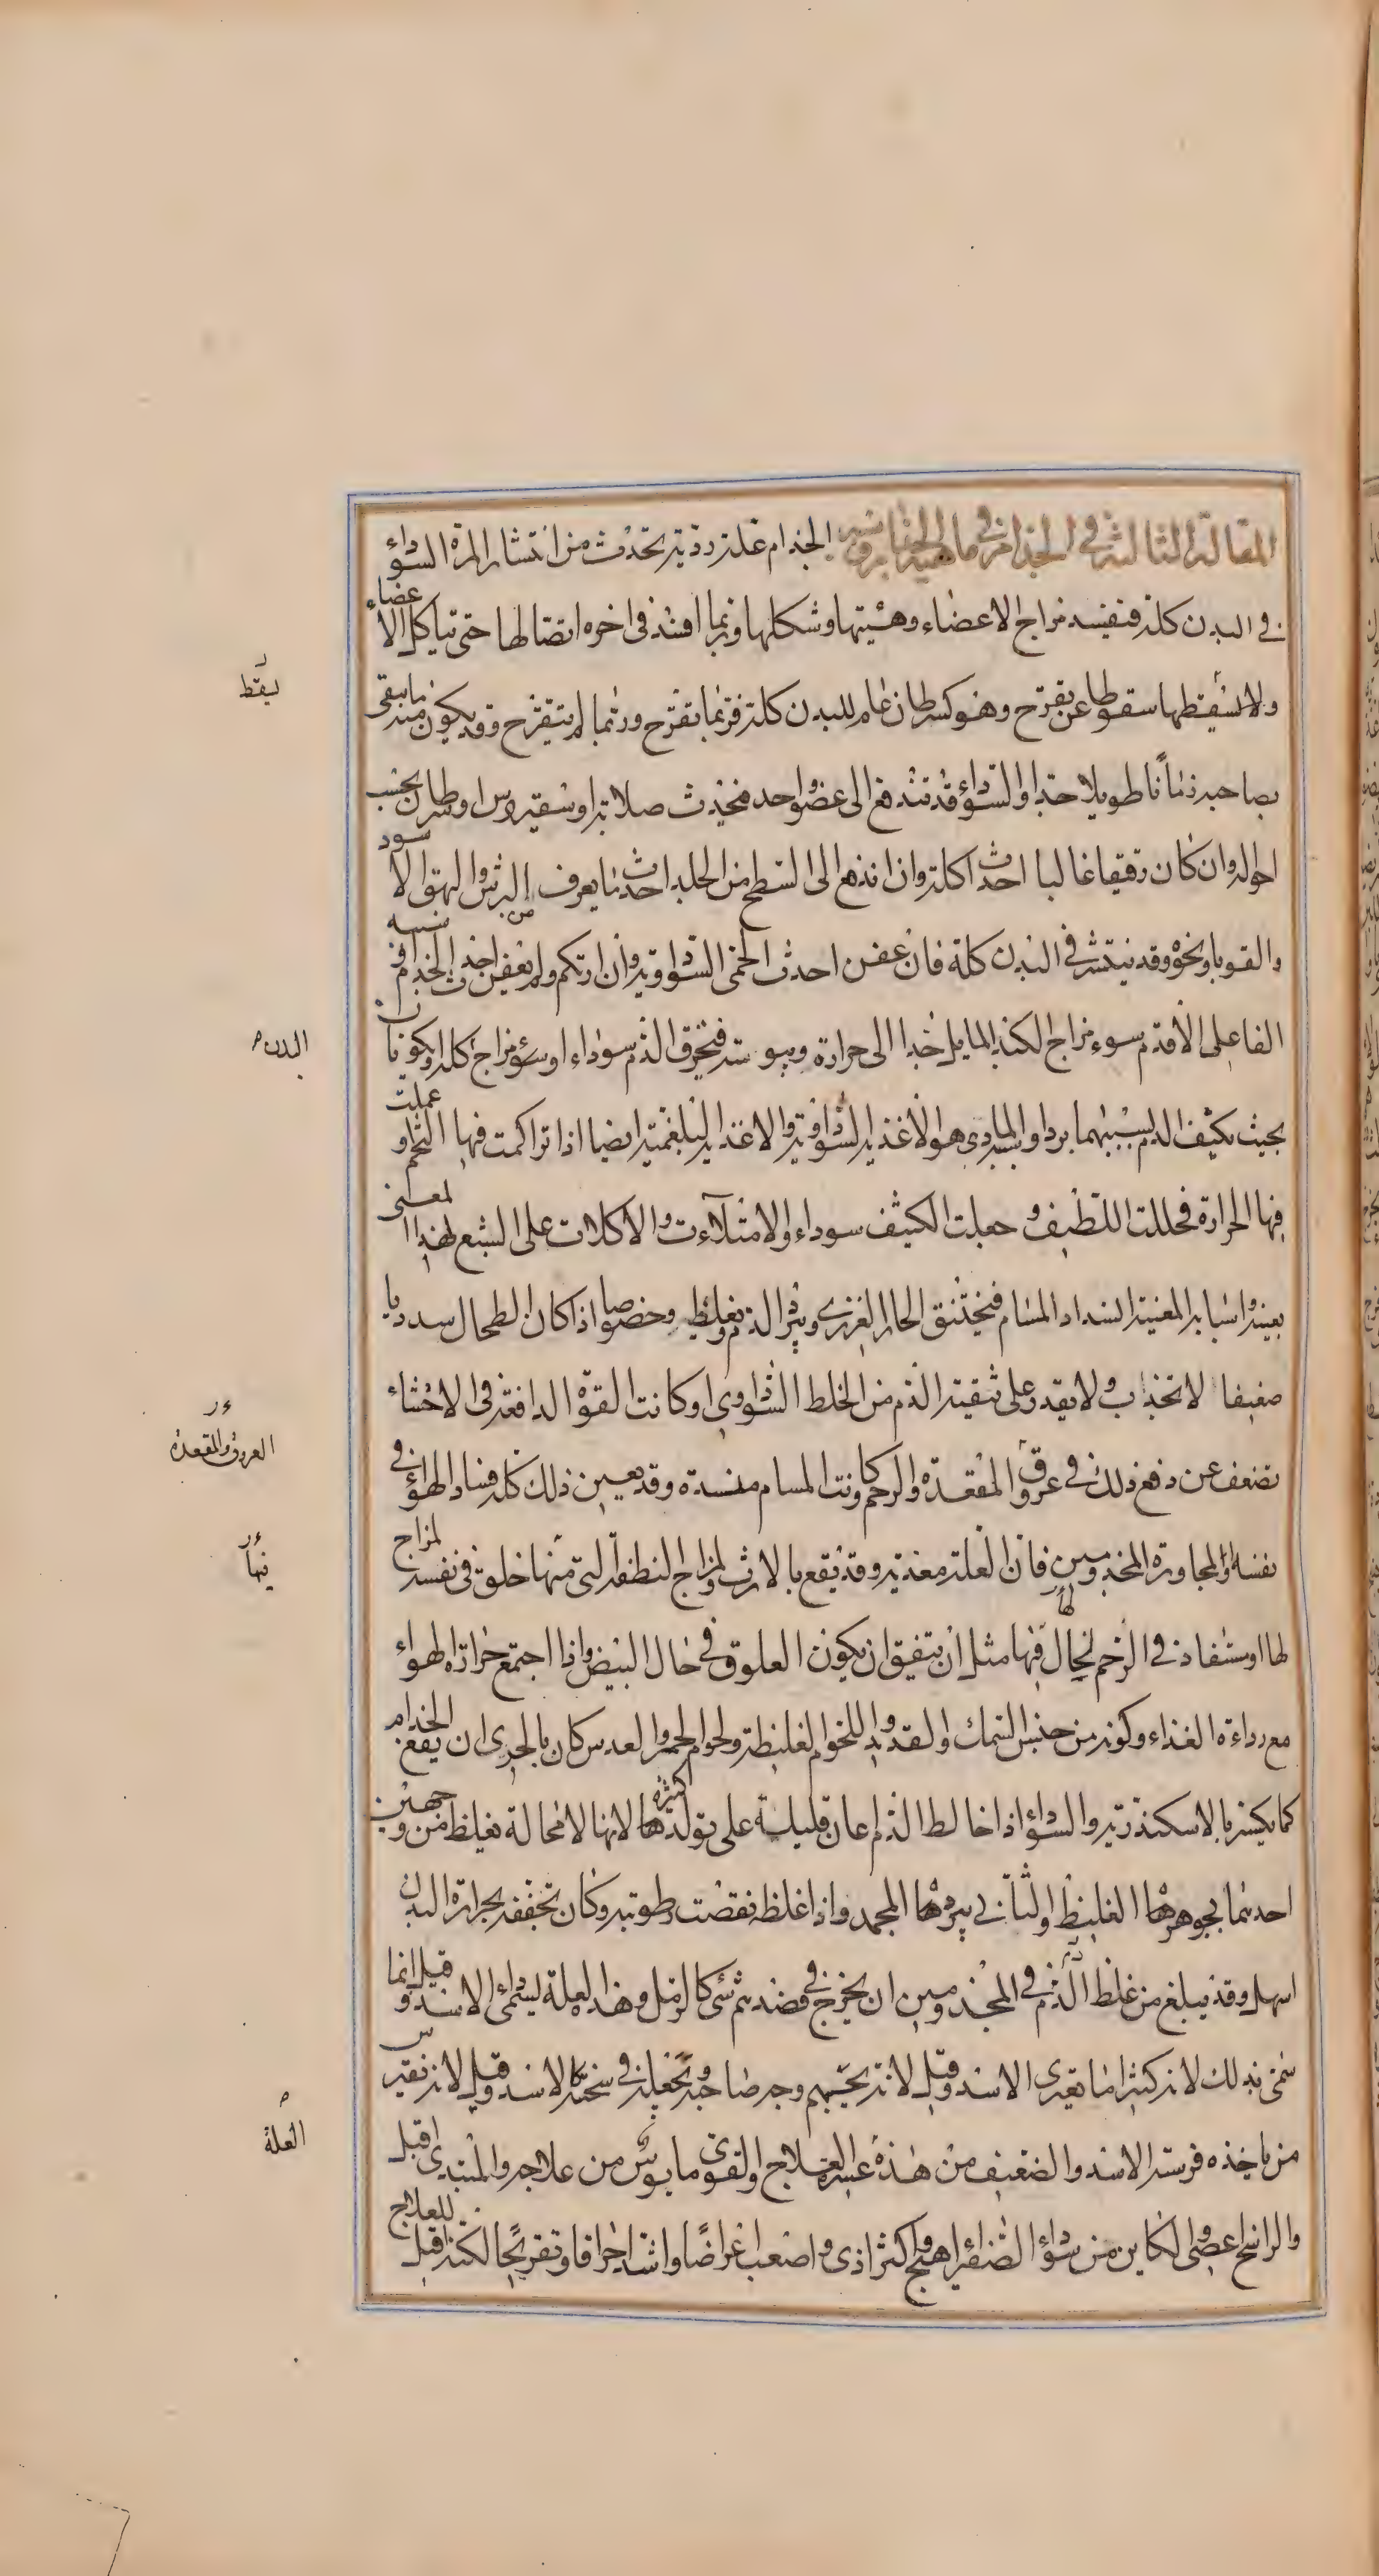 المقالة الثالثة في الجذام في ماهية الجذام وسببه الجذام علة ردية تحدث من انتشار المرة السوداء
في البدن كله فيفسد مزاج الاعضاء وهيئتها وشكلها وربما افسد في اخره اتصالها حتى تتاكل الاعضاء
ولا لسقطها سقوطا عن تقرح وهو كسرطان عام للبدن كله فربما تقرح وربما لم يتقرح وقد يكون منه ما يبقى
بصاحبه زمانا طويلا جدا والسوداء قد تندفع الى عضو واحد فتحدث صلابة او سقيروس او سرطان بحسب
احواله وان كان رقيقا غالبا احدث اكلة وان اندفع الى السطح من الجلد احدث ما يعرف من البرش والبهق الاسود
والقوبا ونحوه وقد ينتشر في البدن كله فان عفن احدث الحمى السوداوية وان ارتكم ولم يعفن احدث الجذام وسببه
الفاعلي الاقدم سوء مزاج الكبد المايل جدا الى حرارة ويبوسة فتحرق الدم سوداء او سوء مزاج كله او يكونان
بحيث يكثف الدم بسببهما بردا والسبب المادي هو الاغذية السوداوية والاغذية البلغمية ايضا اذا تراكمت فيها التخم وعملت
فيها الحرارة فحللت اللطيف وجعلت الكثيف سوداء والامتلاءات والاكلات على الشبع لهذا المعنى
بعينه واسبابه المعينة انسداد المسام فيختنق الحار الغريزي ويبرد الدم ويغلظ وخصوصا اذا كان الطحال سدديا
ضعيفا لا يجذب ولا يقدر على تنقية الدم من الخلط السوداوي او كانت القوة الدافعة في الاحشاء
تضعف عن دفع ذلك في عروق المقعدة والرحم وكانت المسام منسدة وقد يعين ذلك كله فساد الهواء في
نفسه او لمجاورة المجذومين فان العلة معدية وقد يقع بالارث ولمزاج النطفة التي منها خلق في نفسه لمزاج
لها او مستفاد في الرحم لحال فيها مثل ان يتفق ان يكون العلوق في حال الحيض واذا اجتمع حرارة الهواء
مع رداءة الغذاء وكونه من جنس السمك والقديد واللحوم الغليظة ولحوم الحمر والعدس كان بالحري ان يقع الجذام
كما يكثر بالاسكندرية والسوداء اذا خالط الدم اعان قليله على تولد كثيره لانها لا محالة يغلظ من وجهين
احدهما بجوهرها الغليظ والثاني ببردها المجمد واذا غلظ نقصت رطوبته وكان تجففه بحرارة البدن
اسهل وقد يبلغ من غلظ الدم في المجذومين ان يخرج في فصدهم شي كالرمل وهذه العلة يسمى داء الاسد وقيل انما
سمي بذلك لانه كثيرا ما يعتري الاسد وقيل لانه يجهم وجه صاحبه ويجعله في سحنة الاسد وقيل لانه يفترس
من ياخذه فرسة الاسد والضعيف من هذه عسر العلاج والقوي مايوس من علاجه والمبتدي اقبل
والراسخ اعصى والكاين من سوداء الصفراء اهيج واكثر اذى واصعب اعراضا واشد احراقا وتقريحا لكنه اقبل للعلاج
يسقط
البدن
العروق والمقعدة
فيها
العلة